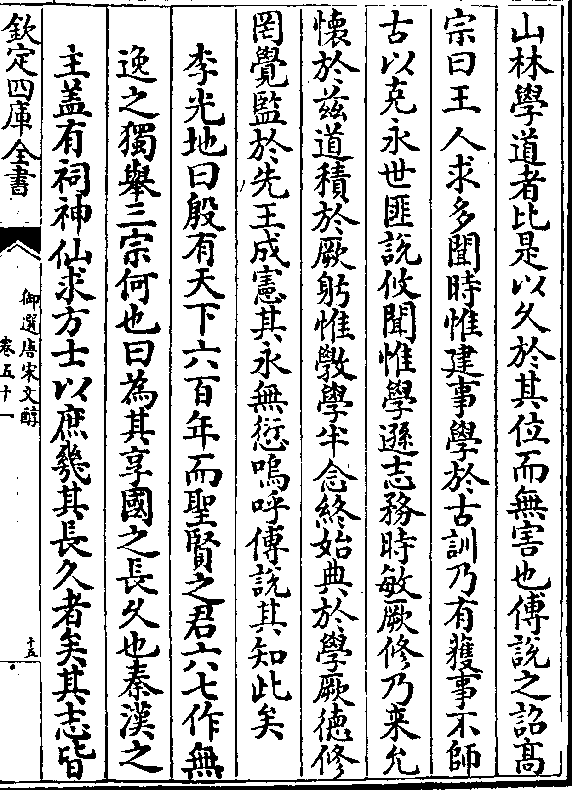 山林學道者比是以久於其位而無害也傅說之詔髙
宗曰王人求多聞時惟建事學於古訓乃有獲事不師
古以克永世匪說攸聞惟學遜志務時敏厥修乃来允
懐於兹道積於厥躬惟斆學半念終始典於學厥徳修
罔覺監於先王成憲其永無愆嗚呼傅說其知此矣
李光地曰殷有天下六百年而聖賢之君六七作無
逸之獨舉三宗何也曰為其享國之長久也秦漢之
主盖有祠神仙求方士以庶幾其長久者矣其志皆
欽定四庫全書
御選唐宋文醇
卷五十一
十五